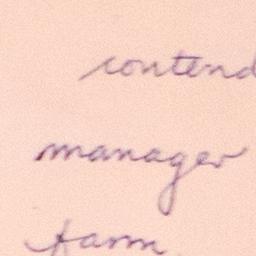 contend
manager
farm